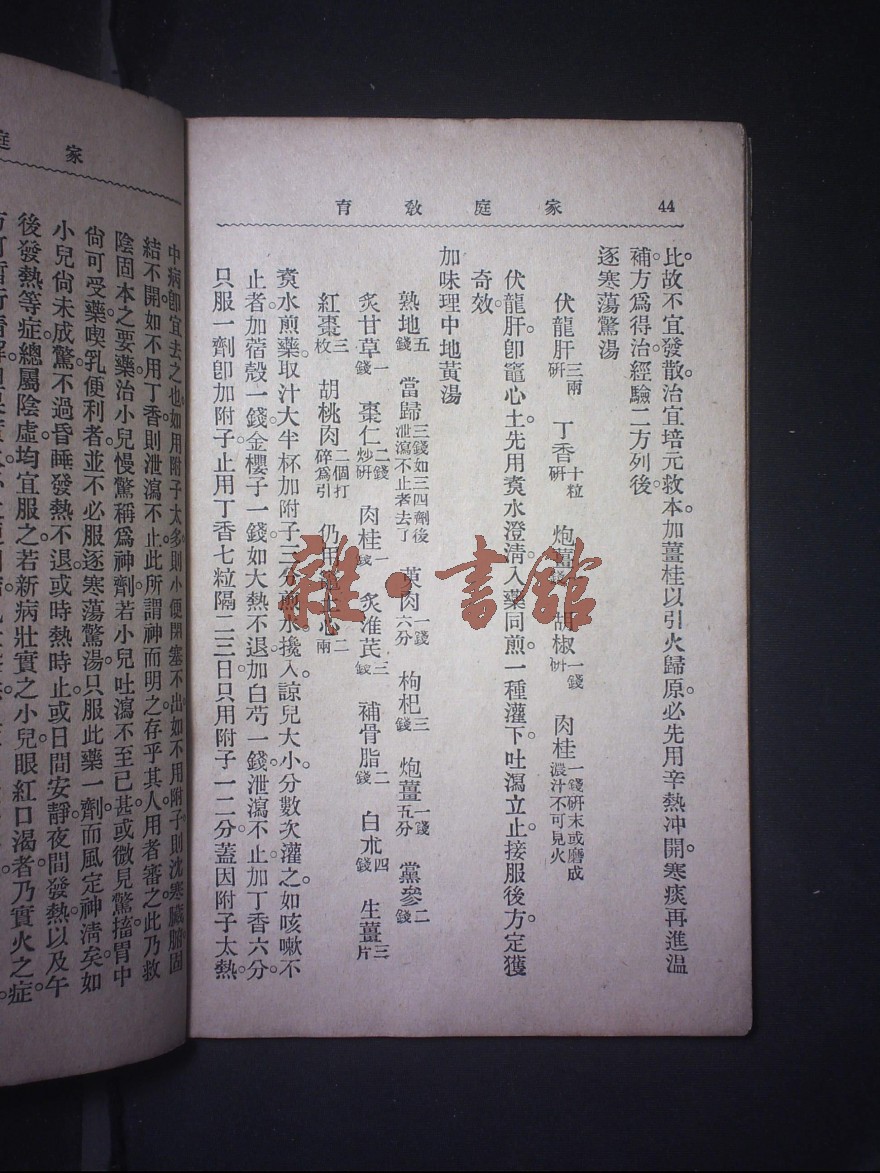 家庭教育 44
比故不宜發散治宜培元救本。加薑桂以引火歸原。必先用辛熱冲開寒痰再進溫
補方爲得治經驗二方列後。
逐寒蕩驚湯
伏龍肝三兩研 丁香十粒研 炮薑錢 胡椒一錢研 肉桂一錢研末或磨成濃汁不可見火
伏龍肝。卽竈心土。先用煑水澄淸。入藥同煎。一種灌下。吐瀉立止。接服後方。定獲
奇效。
加味理中地黃湯
熟地五錢 當歸三錢如三四劑後泄瀉不止者去了 萸肉一錢六分 枸杞三錢 炮薑一錢五分 黨參二錢
炙甘草一錢 棗仁二錢炒研 肉桂一錢 炙淮芪三錢 補骨脂二錢 白朮四錢 生薑三片
紅棗三枚 胡桃肉二個打碎爲引 仍用 心二兩
煑水煎藥。取汁大半杯。加附子三分煎水攙入。諒兒大小分數次灌之。如咳嗽不
止者。加蓿殼一錢。金櫻子一錢。如大熱不退。加白芍一錢。泄瀉不止。加丁香六分。
只服一劑。卽加附子。止用丁香七粒。隔二三日。只用附子一二分。蓋因附子太熱。
家庭
中病卽宜去之也。如用附子太多。則小便閉塞不出。如不用附子。則沈寒臟腑固
結不開。如不用丁香。則泄瀉不止。此所謂神而明之。存乎其人。用者審之。此乃救
陰固本之要藥。治小兒慢驚。稱爲神劑。若小兒吐瀉不至已甚。或微見驚搐。胃中
尙可受藥。喫乳便利者。並不必服逐寒蕩驚湯。只服此藥一劑。而風定神淸矣。如
小兒尙未成驚。不過昏睡發熱不退。或時熱時止。或日間安靜。夜間發熱。以及午
後發熱等症。總屬陰虛。均宜服之。若新病壯實之小兒。眼紅口渴者。乃實火之症。
雜·書館